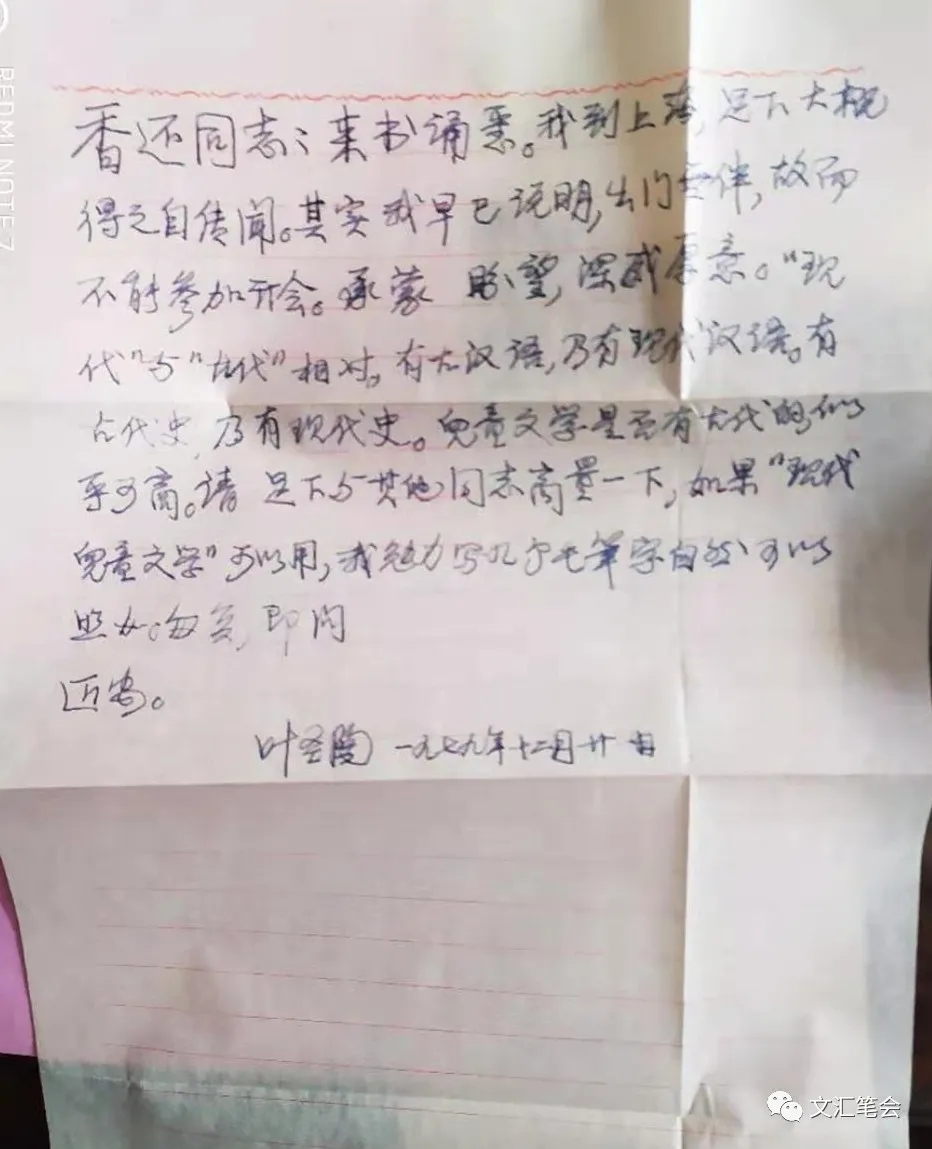 香还同志：来书诵悉。我到上海，足下大概
得之自传闻。其实我早已说明，出门无伴，故而
不能参加开会。承蒙 盼望，深感厚意。“现
代”与“古代”相对。有古汉语，乃有现代汉语。有
古代史，乃有现代史。儿童文学是否有古代的似
乎可商。请 足下与其他同志商量一下，如果“现代
儿童文学”可以用，我勉力写几个毛笔字自然可以
照办。匆复，即问
近安。
叶圣陶 一九七九年十二月廿日
REDMI NOTE 7
文汇笔会